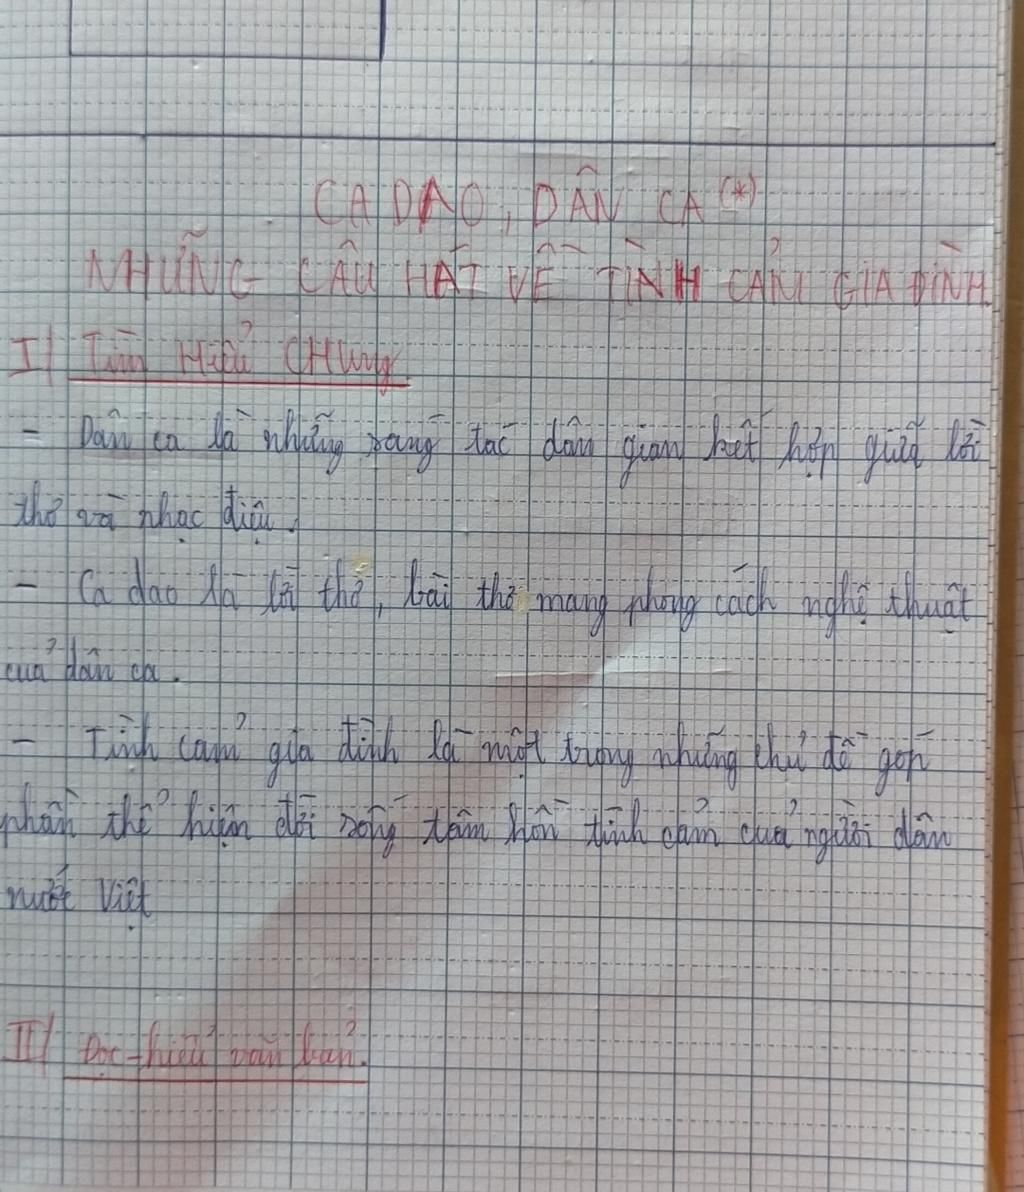 CA DAO, DÂN CA (*)
NHỮNG CÂU HÁT VỀ TÌNH CẢM GIA ĐÌNH
I/ Tìm Hiểu CHung
- Dân ca là những sáng tác dân gian kết hợp giữa lời
thơ và nhạc điệu.
- Ca dao là lời thơ, bài thơ mang phong cách nghệ thuật
của dân ca.
- Tình cảm gia đình là một trong những chủ đề góp
phần thể hiện đời sống tâm hồn tình cảm của người dân
nước Việt
II/ Đọc-hiểu văn bản.